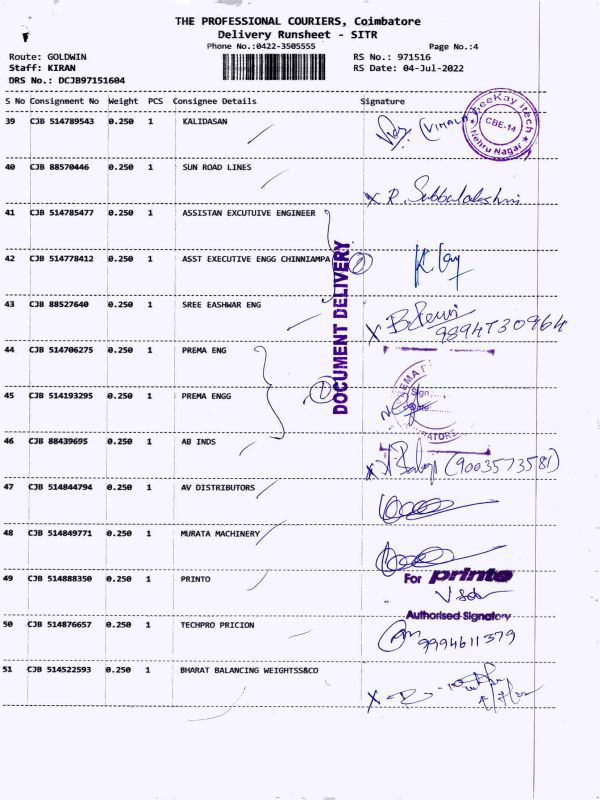 THE PROFESSIONAL COURIERS, Coimbatore
Delivery Runsheet - SITR
Phone No.:0422-3505555
Page No.:4
Route: GOLDWIN
RS No.: 971516
Staff: KIRAN
RS Date: 04-Jul-2022
DRS No.: DCJB97151604
S No Consignment No Weight PCS Consignee Details Signature
39 CJB 514789543 0.250 1 KALIDASAN
(VIMALA)
CeeKay itech
CBE-14
* Nehru Nagar *
40 CJB 88570446 0.250 1 SUN ROAD LINES
X R. Subbulakshmi
41 CJB 514785477 0.250 1 ASSISTAN EXCUTUIVE ENGINEER
42 CJB 514778412 0.250 1 ASST EXECUTIVE ENGG CHINNIAMPA
DOCUMENT DELIVERY
43 CJB 88527640 0.250 1 SREE EASHWAR ENG
9894730964
44 CJB 514706275 0.250 1 PREMA ENG
45 CJB 514193295 0.250 1 PREMA ENGG
Sign
Date
46 CJB 88439695 0.250 1 AB INDS
(9003573581)
47 CJB 514844794 0.250 1 AV DISTRIBUTORS
48 CJB 514849771 0.250 1 MURATA MACHINERY
49 CJB 514888350 0.250 1 PRINTO
For printo
Authorised Signatory
50 CJB 514876657 0.250 1 TECHPRO PRICION
9994611379
51 CJB 514522593 0.250 1 BHARAT BALANCING WEIGHTSS&CO